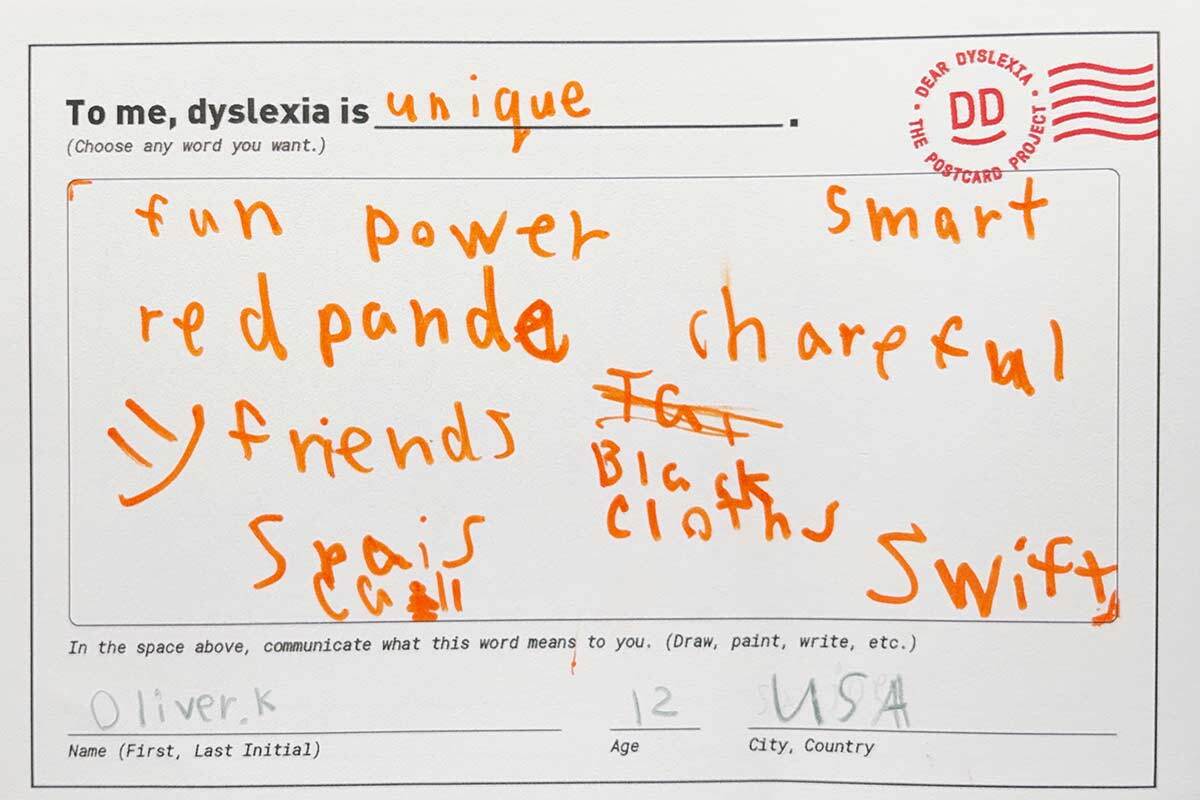 To me, dyslexia is unique.
(Choose any word you want.)
DEAR DYSLEXIA
DD
THE POSTCARD PROJECT
fun power smart
red panda chareful
friends
Black
Cloths
Spais
Call
Swift
In the space above, communicate what this word means to you. (Draw, paint, write, etc.)
Oliver.K 12 USA
Name (First, Last Initial) Age City, Country